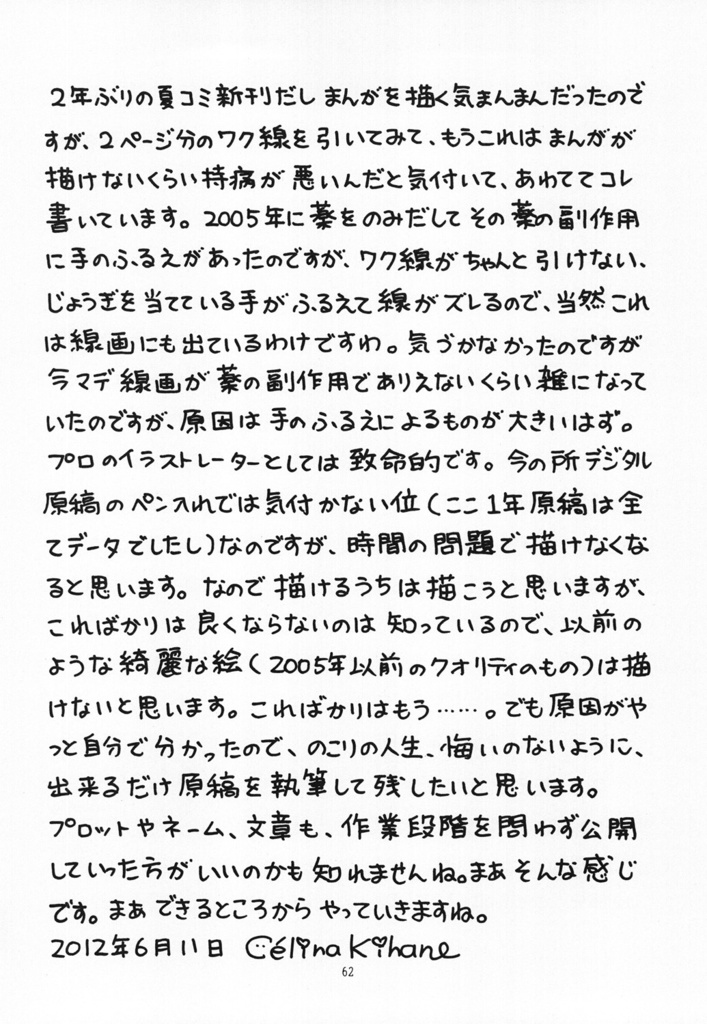 2年ぶりの夏コミ新刊だし まんがを描く気まんまんだったので
すが、2ページ分のワク線を引いてみて、もうこれは まんがが
描けないくらい持病が 悪いんだと気付いて、あわててコレ
書いています。2005年に薬をのみだして その薬の副作用
に手のふるえがあったのですが、ワク線がちゃんと引けない、
じょうぎを当てている手がふるえて線がズレるので、当然これ
は線画にも出ているわけですわ。気づかなかったのですが
今マデ線画が薬の副作用でありえないくらい雑になって
いたのですが、原因は手のふるえによるものが大きいはず。
プロのイラストレーターとしては致命的です。今の所デジタル
原稿のペン入れでは気付かない位(ここ1年原稿は全
てデータでしたし)なのですが、時間の問題で描けなくな
ると思います。なので描けるうちは描こうと思いますが、
こればかりは良くならないのは知っているので、以前の
ような綺麗な絵(2005年以前のクオリティのもの)は描
けないと思います。こればかりはもう……。でも原因がや
っと自分で分かったので、のこりの人生、悔いのないように、
出来るだけ原稿を執筆して残したいと思います。
プロットやネーム、文章も、作業段階を問わず公開
していった方がいいのかも知れませんね。まぁそんな感じ
です。まぁできるところからやっていきますね。
2012年6月11日 Célina Kihane
62